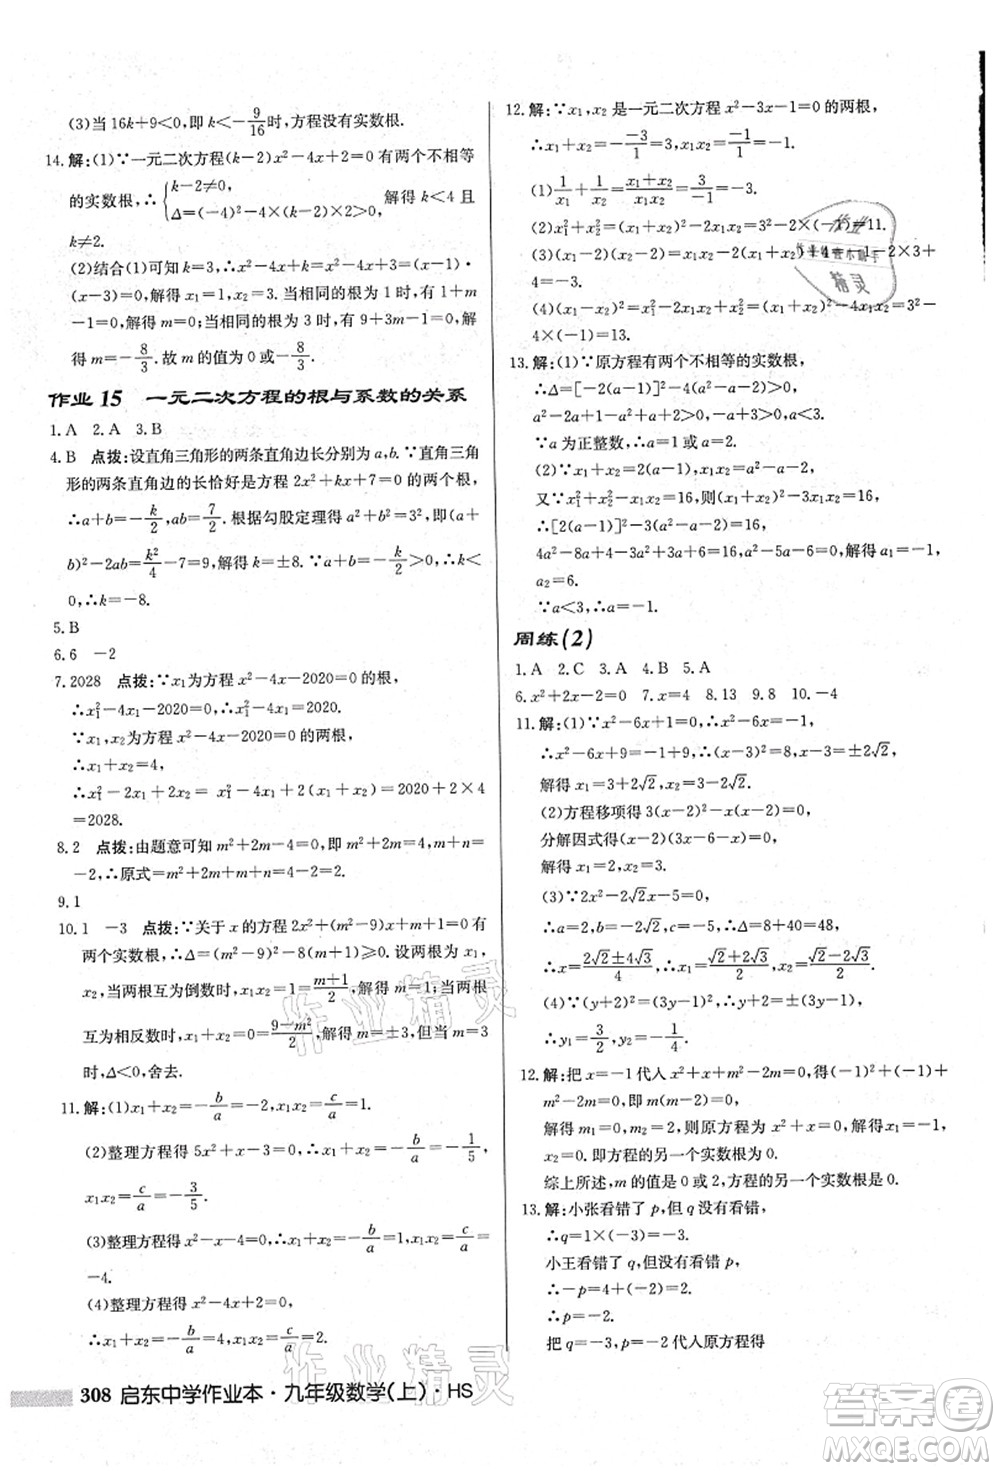 (3)当 16k+9<0,即 k<-9/16时,方程没有实数根.
14.解:(1)∵一元二次方程(k-2)x²-4x+1=0 有两个不相等
的实数根,∴{k-2≠0, Δ=(-4)²-4×(k-2)×1>0, 解得 k<4 且
k≠2.
(2)结合(1)可知 k=3,∴x²-4x+k=x²-4x+3=(x-1)·
(x-3)=0,解得 x₁=1,x₂=3.当相同的根为 1 时,有 1+m
-1=0,解得 m=0;当相同的根为 3 时,有 9+3m-1=0,解
得 m=-8/3.故 m 的值为 0 或-8/3.
作业 15 一元二次方程的根与系数的关系
1.A 2.A 3.B
4.B 点拨:设直角三角形的两条直角边长分别为 a,b.∵直角三角
形的两条直角边的长恰好是方程 2x²+kx+7=0 的两个根,
∴a+b=-k/2,ab=7/2.根据勾股定理得 a²+b²=3²,即(a+
b)²-2ab=k²/4-7=9,解得 k=±8.∵a+b=-k/2>0,∴k<
0,∴k=-8.
5.B
6.6 -2
7.2028 点拨:∵x₁为方程 x²-4x-2020=0 的根,
∴x₁²-4x₁-2020=0,∴x₁²-4x₁=2020.
∵x₁,x₂为方程 x²-4x-2020=0 的两根,
∴x₁+x₂=4,
∴x₁²-2x₁+2x₂=x₁²-4x₁+2(x₁+x₂)=2020+2×4=
2028.
8.2 点拨:由题意可知 m²+2m-4=0,m+n=-2,∴m²+2m=4,n=-m
-2,∴原式=m²+2m+m+n=4-2=2.
9.1
10.1 -3 点拨:∵关于 x 的方程 2x²+(m²-9)x+m+1=0 有
两个实数根,∴Δ=(m²-9)²-8(m+1)≥0.设两根为 x₁,
x₂,当两根互为倒数时,x₁x₂=(m+1)/2=1,解得 m=1;当两根
互为相反数时,x₁+x₂=0=(9-m²)/2,解得 m=±3,但当 m=3
时,Δ<0,舍去.
11.解:(1)x₁+x₂=-b/a=-2,x₁x₂=c/a=1.
(2)整理方程得 5x²+x-3=0,∴x₁+x₂=-b/a=-1/5,
x₁x₂=c/a=-3/5.
(3)整理方程得 x²-4=0,∴x₁+x₂=-b/a=0,x₁x₂=c/a=
-4.
(4)整理方程得 x²-4x+2=0,
∴x₁+x₂=-b/a=4,x₁x₂=c/a=2.
308 启东中学作业本·九年级数学(上)·HS
12.解:∵x₁,x₂ 是一元二次方程 x²-3x-1=0 的两根,
∴x₁+x₂=-(-3)/1=3,x₁x₂=-1.
(1)1/x₁+1/x₂=(x₁+x₂)/(x₁x₂)=3/(-1)=-3.
(2)x₁²+x₂²=(x₁+x₂)²-2x₁x₂=3²-2×(-1)=11.
4=-3.
(4)(x₁-x₂)²=x₁²+x₂²-2x₁x₂=(x₁+x₂)²-4x₁x₂=3²-
4×(-1)=13.
13.解:(1)∵原方程有两个不相等的实数根,
∴Δ=[-2(a-1)]²-4(a²-a-2)>0,
a²-2a+1-a²+a+2>0,∴a<3.
∵a 为正整数,∴a=1,2.
(2)∵x₁+x₂=2(a-1),x₁x₂=a²-a-2,
又∵x₁²+x₂²-x₁x₂=16,则(x₁+x₂)²-3x₁x₂=16,
∴[2(a-1)]²-3(a²-a-2)=16,
4a²-8a+4-3a²+3a+6=16,解得 a₁=-1,
a₂=6.
∵a<3,∴a=-1.
周练(2)
1.A 2.C 3.A 4.B 5.A
6.x²+2x-2=0 7.x=4 8.13 9.8 10.-4
11.解:(1)∵x²-6x+1=0,∴x²-6x=-1,
∴x²-6x+9=-1+9,∴(x-3)²=8,∴x-3=±2√2,
解得 x₁=3+2√2,x₂=3-2√2.
(2)方程移项得 3(x-2)²-x(x-2)=0,
分解因式得(x-2)(3x-6-x)=0,
解得 x₁=2,x₂=3.
(3)∵x²-2√2x-5=0,
∴a=1,b=-2√2,c=-5,∴Δ=8+40=48,
∴x=(2√2±4√3)/2,∴x₁=√2+2√3,x₂=√2-2√3.
(4)∵(y+2)²=(3y-1)²,∴y+2=±(3y-1),
∴y₁=3/2,y₂=-1/4.
12.解:把 x=-1代入 x²+x+m²-2m=0,得(-1)²+(-1)+
m²-2m=0,
解得 m₁=0,m₂=2,则原方程为 x²+x=0,解得x₁=-1,
x₂=0.即方程的另一个实数根为 0.
综上所述,m 的值是 0 或 2,方程的另一个实数根是 0.
13.解:小张看错了 p,但 q 没有看错,
∴q=1×(-3)=-3.
小王看错了 q,但 p 没有看错,
∴-p=4+(-2)=2,
∴p=-2.
把 q=-3,p=-2 代入原方程得
作业精灵
作业精灵
答案圈
MXQE.COM